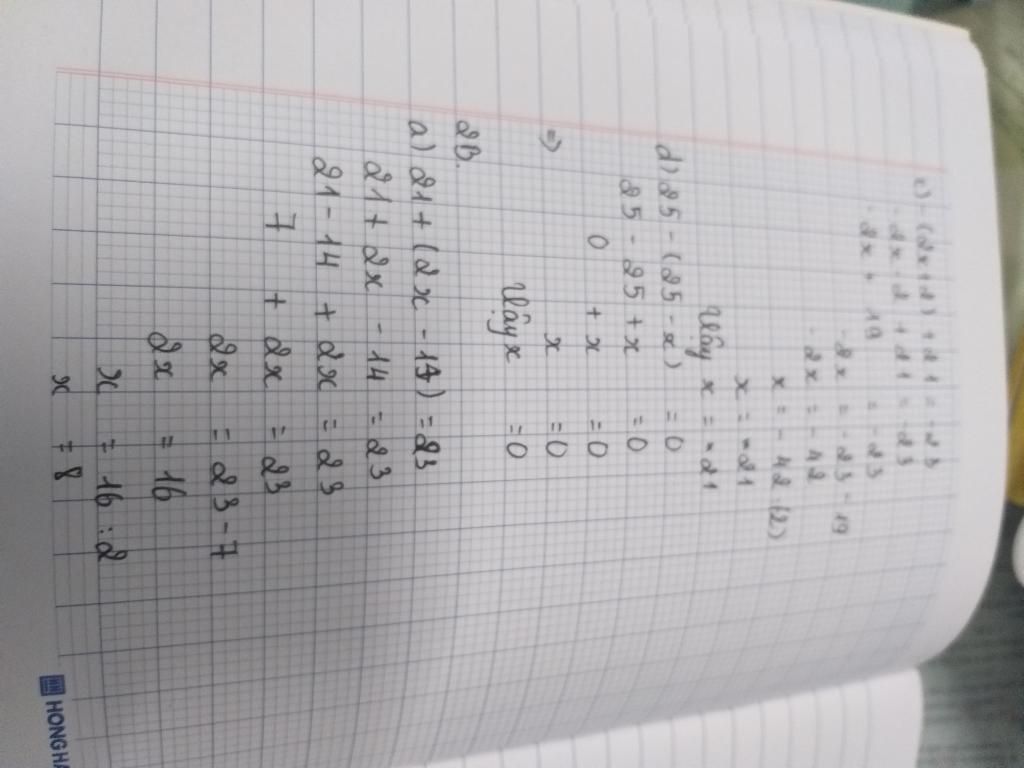 c) - (2x + 2) + 21 = -23
-2x - 2 + 21 = -23
-2x + 19 = -23
-2x = -23 - 19
-2x = -42
x = -42 : (2)
x = -21
Vậy x = -21
d) 25 - (25 - x) = 0
25 - 25 + x = 0
0 + x = 0
=> x = 0
Vậy x = 0
2B.
a) 21 + (2x - 14) = 23
21 + 2x - 14 = 23
21 - 14 + 2x = 23
7 + 2x = 23
2x = 23 - 7
2x = 16
x = 16 : 2
x = 8
HONG HA